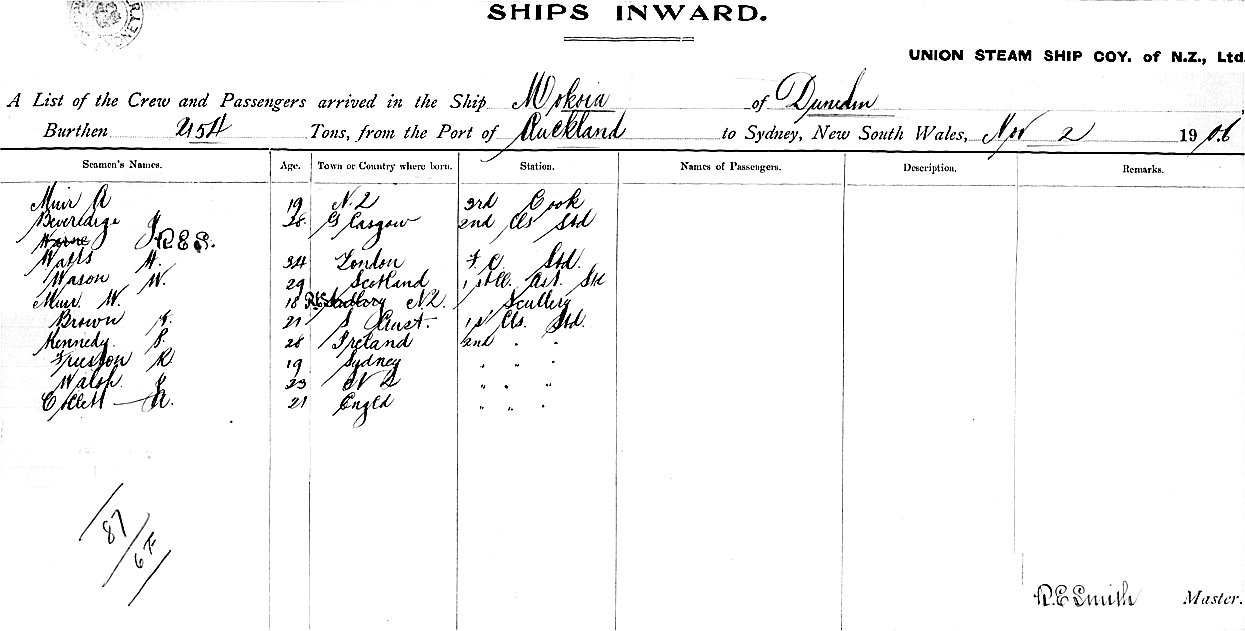 SHIPS INWARD.
UNION STEAM SHIP COY. of N.Z., Ltd
A List of the Crew and Passengers arrived in the Ship Mokoia of Dunedin
Burthen 2154 Tons, from the Port of Auckland to Sydney, New South Wales, Nov 2 1906
Seamen's Names. Age. Town or Country where born. Station. Names of Passengers. Description. Remarks.
Muir A 19 N.Z 3rd Cook
Beveridge J 28 Glasgow 2nd Cls Std
Warne R.E.S.
Watts H. 34 London F C Std.
Wason W. 29 Scotland 1st Cl. Ast. Std
Muir W. 18 N.Z. Scullery
Brown 21 S Aust. 1st Cls. Std.
Kennedy P. 28 Ireland 2nd " "
R 19 Sydney " " "
Walsh J 23 N Z " " "
Collett A. 21 Engld " " "
87
67
R.E Smith Master.